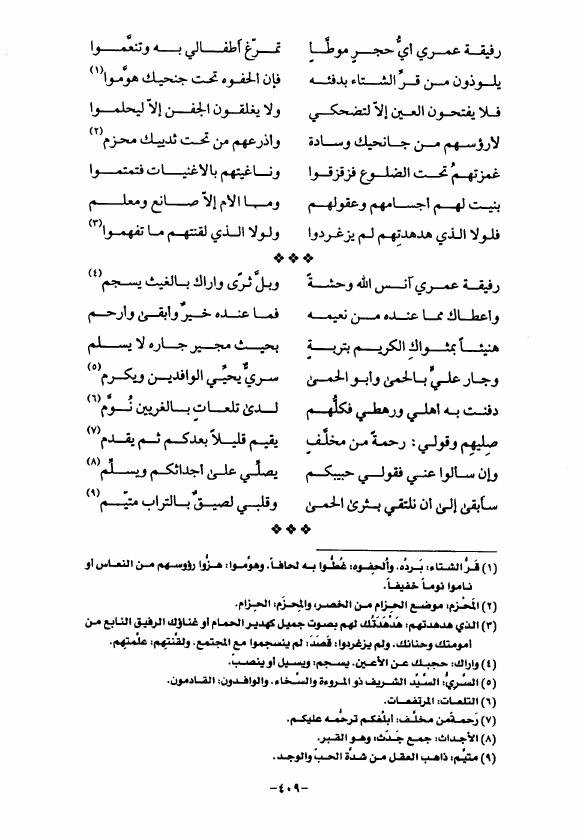 رفيقة عمري أيُّ حجرٍ موطَّإ تمرّغ أطفالي به وتنعَّموا
يلوذون من قرِّ الشتاء بدفئه فإن الحفوه تحت جنحيك هوَّموا(١)
فلا يفتحون العين إلاّ لتضحكي ولا يغلقون الجفن إلاّ ليحلموا
لارؤسهم من جانحيك وسادة واذرعهم من تحت ثدييك محزم(٢)
غمزتهمُ تحت الضلوع فزقزقوا وناغيتهم بالاغنيات فتمتموا
بنيت لهم أجسامهم وعقولهم وما الام إلاّ صانع ومعلم
فلولا الذي هدهدتِهم لم يزغردوا ولولا الذي لقنتهم ما تفهموا(٣)
❖❖❖
رفيقة عمري آنس الله وحشةً وبلَّ ثرًى واراك بالغيث يسجم(٤)
واعطاك مما عنده من نعيمه فما عنده خيرٌ وأبقى وأرحم
هنيئاً بمثواكِ الكريم بتربةٍ بحيث مجير جاره لا يسلم
وجار عليٌّ بالحمىٰ وأبو الحمىٰ سريٌّ يحيّي الوافدين ويكرم(٥)
دفنت به أهلي ورهطي فكلُّهم لدىٰ تلعاتٍ بالغريين نُوَّم(٦)
صِليهم وقولي: رحمةً من مخلَّفٍ يقيم قليلاً بعدكم ثم يقدم(٧)
وإن سالوا عني فقولي حبيبكم يصلّي علىٰ أجدائكم ويسلّم(٨)
سأبقىٰ إلىٰ أن نلتقي بثرىٰ الحمىٰ وقلبي لصيقٌ بالتراب متيّم(٩)
❖❖❖
(١) قرُّ الشتاء: بَرده. والحفوه: غطُّوا به لحافاً. وهوَّموا: هزُّوا رؤوسهم من النعاس أو
ناموا نوماً خفيفاً.
(٢) المَحْزِم: موضع الحِزام من الخصر، والمِحزَم: الحِزام.
(٣) الذي هدهدتهم: هَدْهَدَتُك لهم بصوت جميل كهدير الحمام أو غناؤك الرفيق النابع من
أمومتك وحنانك. ولم يزغردوا: قصَدَ: لم ينسجموا مع المجتمع. ولقَّنتِهم: علَّمتِهم.
(٤) واراك: حجبك عن الأعين. يسجم: ويسيل أو ينصبّ.
(٥) السَّريُّ: السيِّد الشريف ذو المروءة والسَّخاء. والوافدون: القادمون.
(٦) التلعات: المرتفعات.
(٧) رَحمةً من مخلَّف: أبلغكم ترحُّمه عليكم.
(٨) الأجداث: جمع جَدَث: وهو القبر.
(٩) متيَّم: ذاهب العقل من شدَّة الحبّ والوجد.
-٤٠٩-